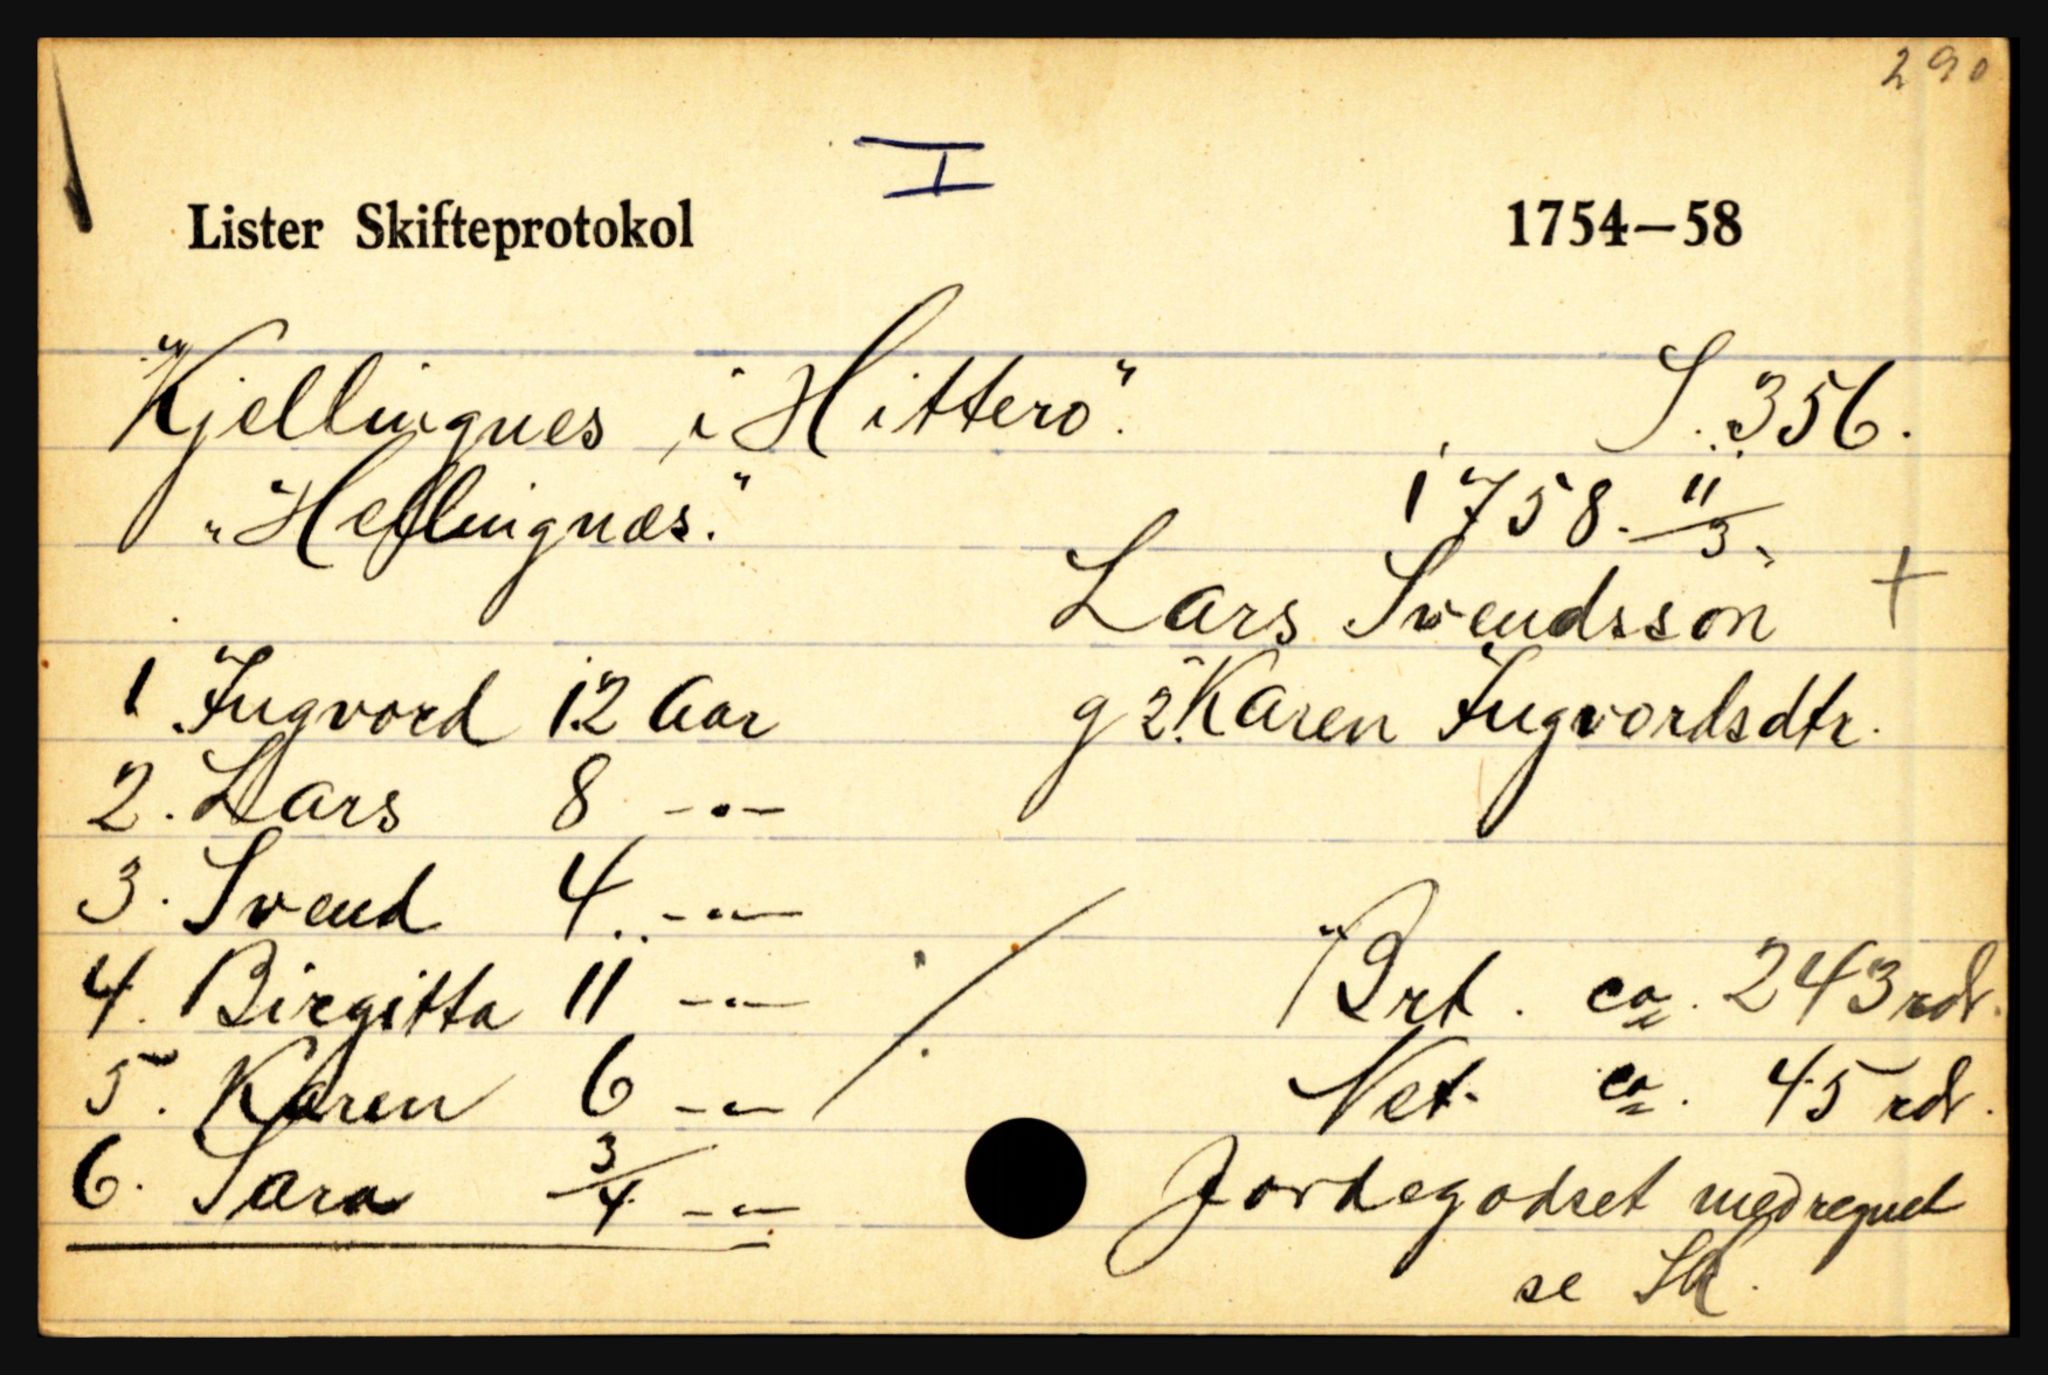 290
I
Lister Skifteprotokol 1754—58
Kjellingnes i Hitterö". S. 356.
"Hellingnæs." 1758. 11/3.
Lars Svendssön +
1 Ingvord 12 Aar g 2. Karen Ingvordsdtr.
2. Lars 8 -"-
3. Svend 4 -"-
4. Birgitta 11 -"- Brt. ca. 243 rdr.
5. Karen 6 -"- Net. ca. 45 rdr.
6. Sara 3/4 -"- Jordegodset medregnet
se Sk.